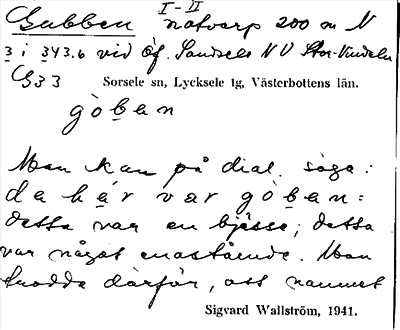 I-II
Gubben notvarp 200 m N
3 i 343.6 vid öf. Sandsele NV Stor-Vindeln
G33 Sorsele sn, Lycksele tg, Västerbottens län.
gòban
Man kan på dial. säga:
da hár var gòban:
detta var en bjässe, detta
var något enastående. Man
trodde därför, att namnet
Sigvard Wallström, 1941.